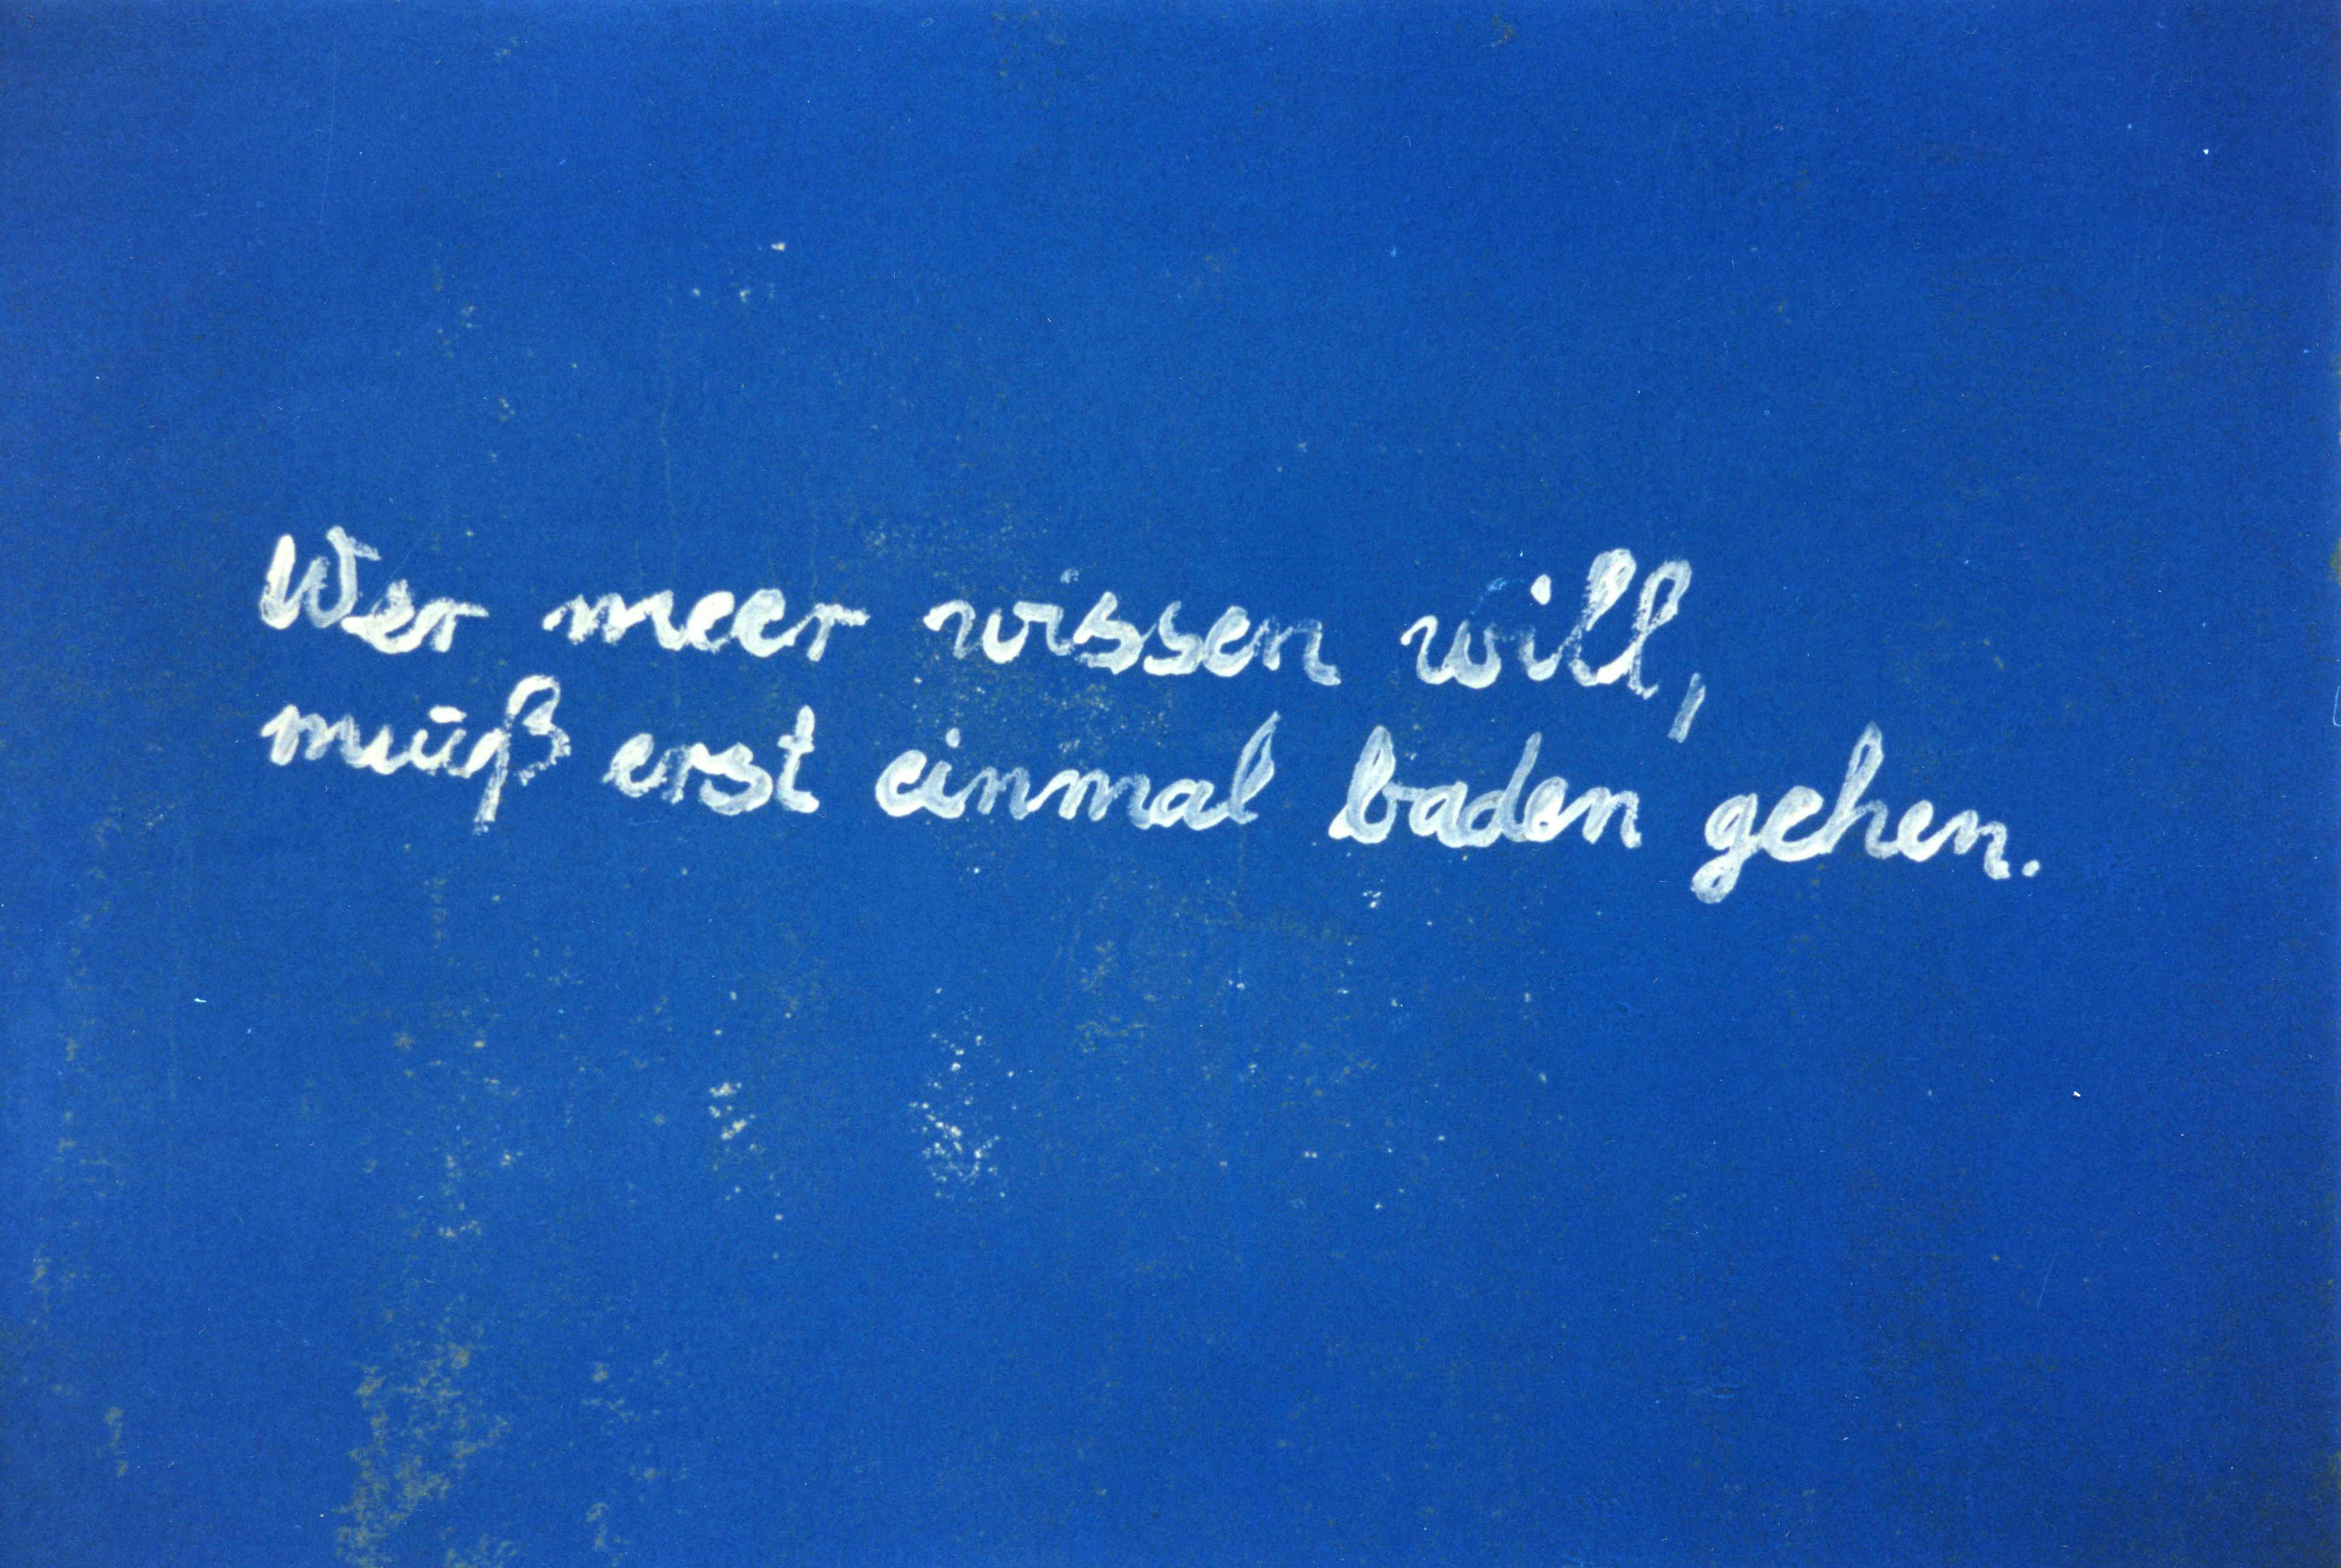 Wer meer wissen will,
muß erst einmal baden gehen.